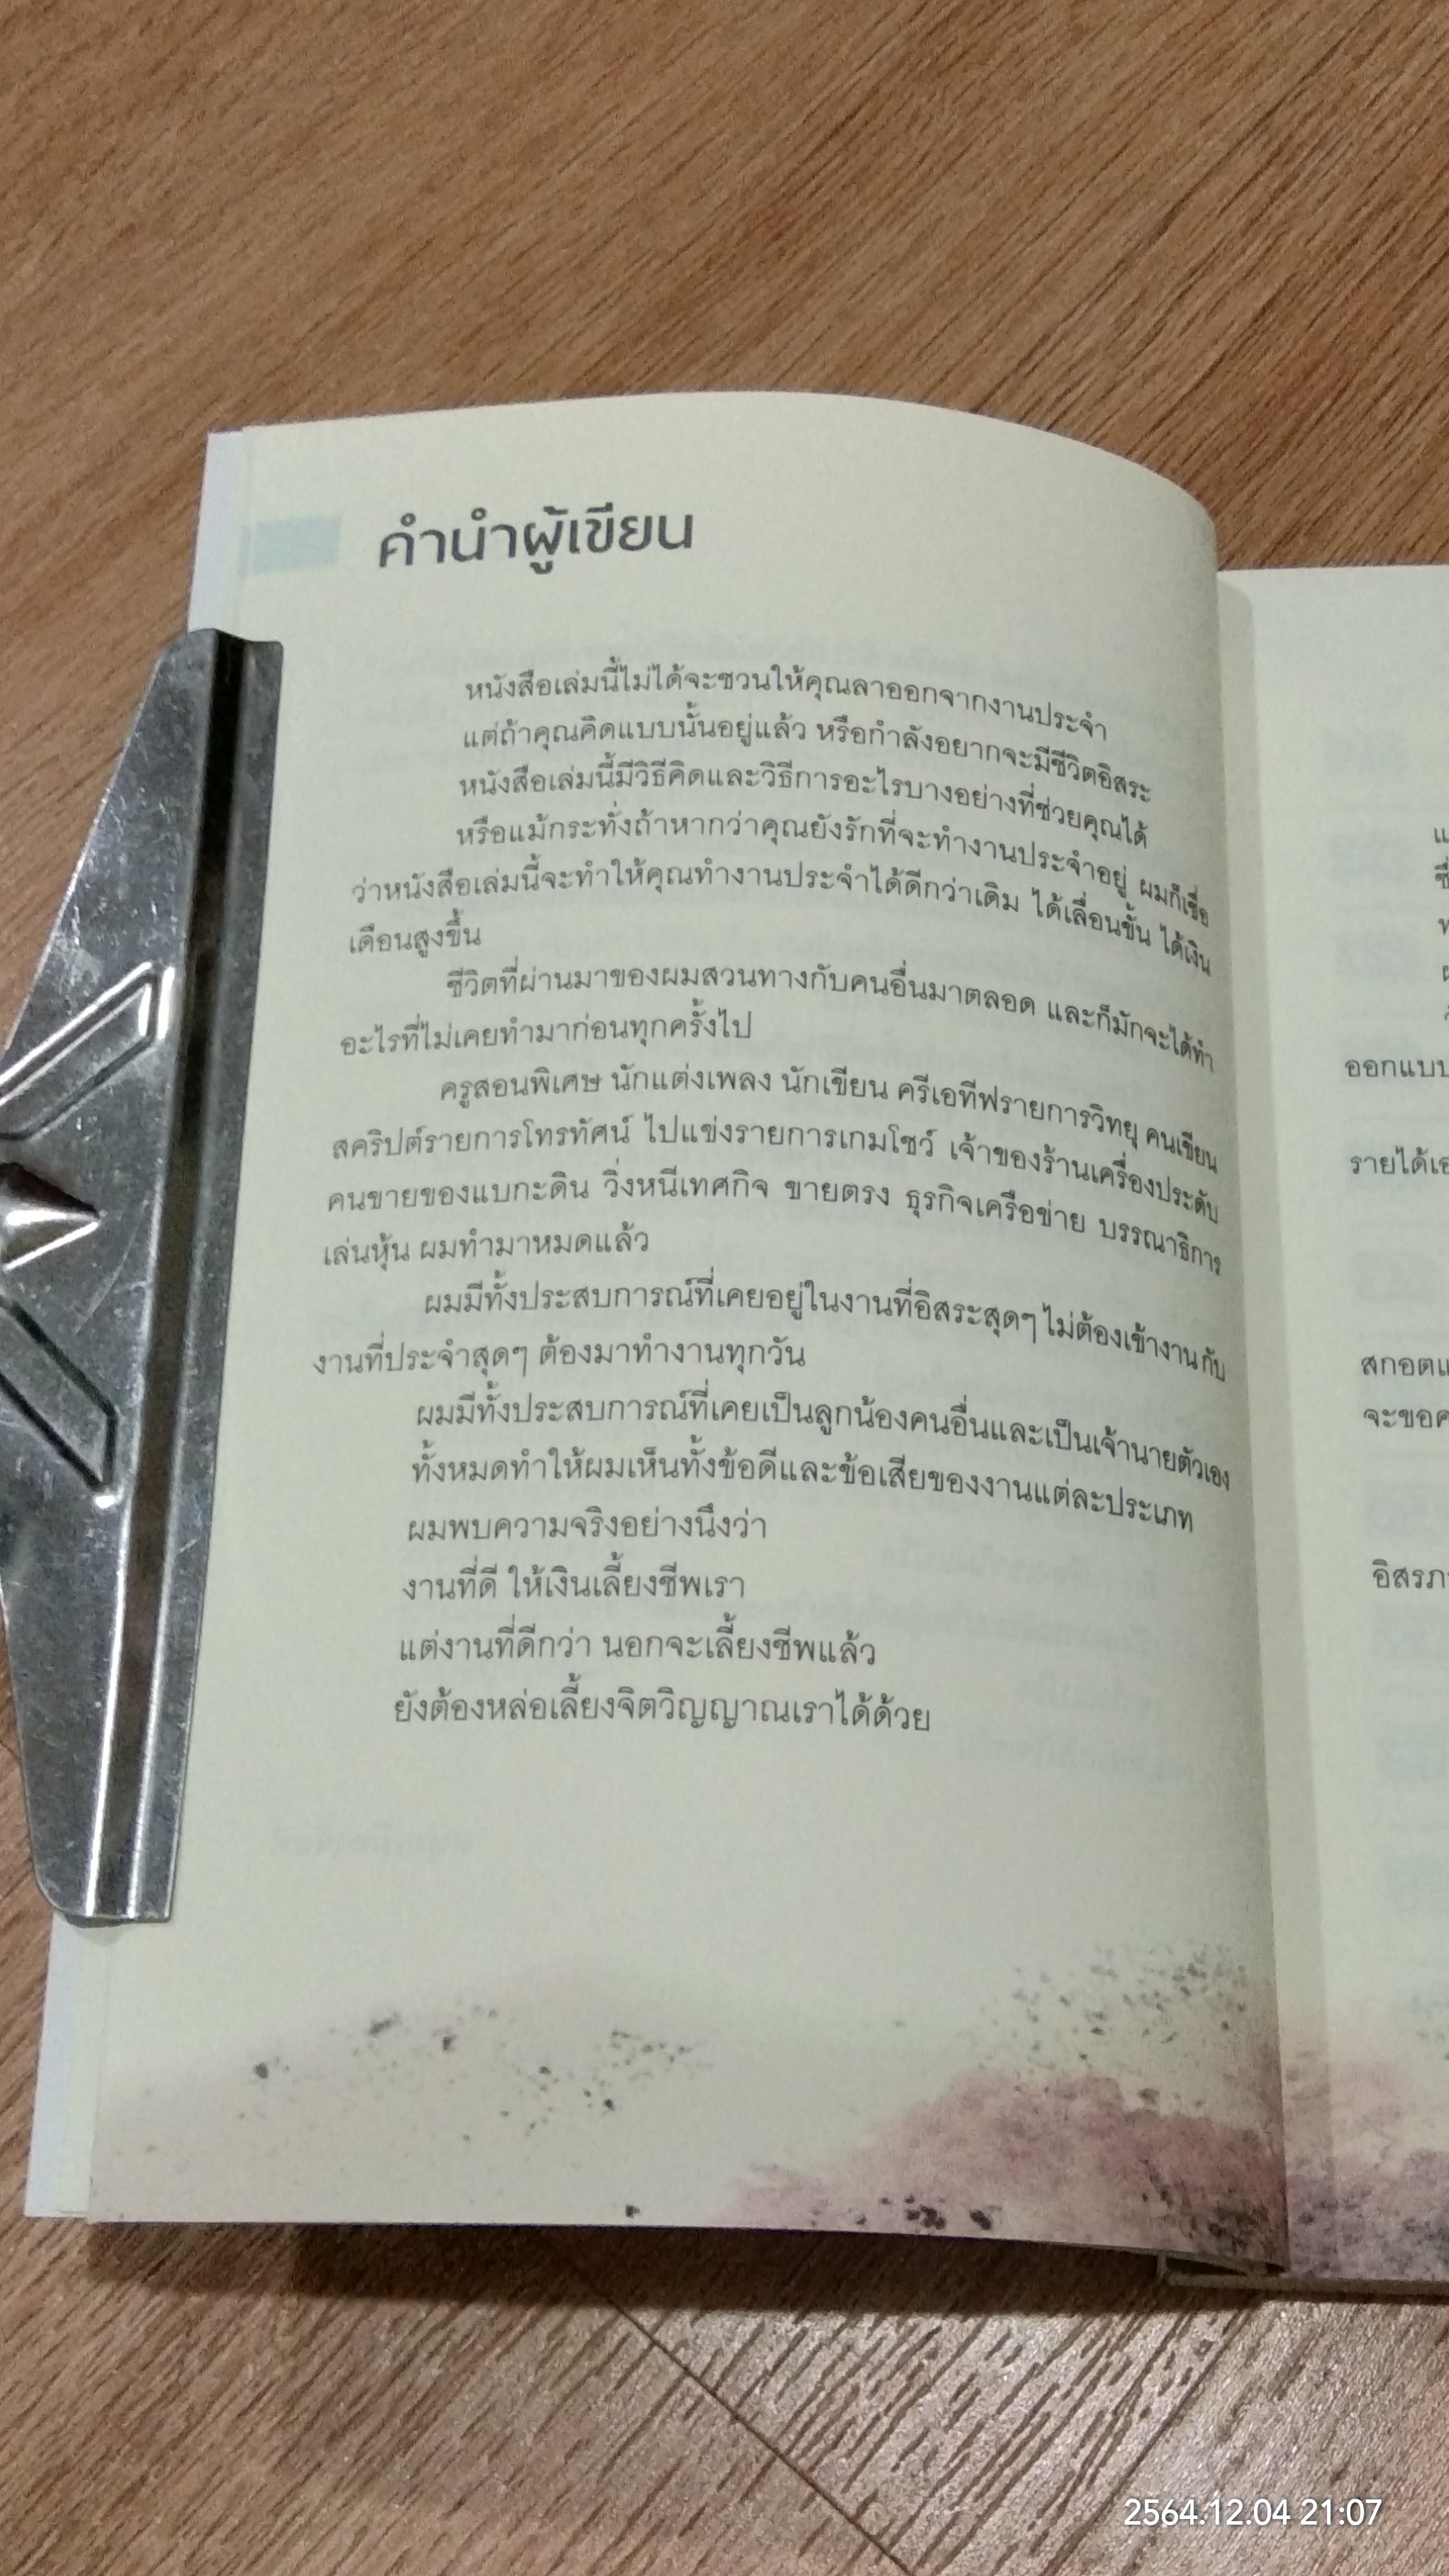 คำนำผู้เขียน
หนังสือเล่มนี้ไม่ได้จะชวนให้คุณลาออกจากงานประจำ
แต่ถ้าคุณคิดแบบนั้นอยู่แล้ว หรือกำลังอยากจะมีชีวิตอิสระ
หนังสือเล่มนี้มีวิธีคิดและวิธีการอะไรบางอย่างที่ช่วยคุณได้
หรือแม้กระทั่งถ้าหากว่าคุณยังรักที่จะทำงานประจำอยู่ ผมก็เชื่อ
ว่าหนังสือเล่มนี้จะทำให้คุณทำงานประจำได้ดีกว่าเดิม ได้เลื่อนขั้น ได้เงิน
เดือนสูงขึ้น
ชีวิตที่ผ่านมาของผมสวนทางกับคนอื่นมาตลอด และก็มักจะได้ทำ
อะไรที่ไม่เคยทำมาก่อนทุกครั้งไป
ครูสอนพิเศษ นักแต่งเพลง นักเขียน ครีเอทีฟรายการวิทยุ คนเขียน
สคริปต์รายการโทรทัศน์ ไปแข่งรายการเกมโชว์ เจ้าของร้านเครื่องประดับ
คนขายของแบกะดิน วิ่งหนีเทศกิจ ขายตรง ธุรกิจเครือข่าย บรรณาธิการ
เล่นหุ้น ผมทำมาหมดแล้ว
ผมมีทั้งประสบการณ์ที่เคยอยู่ในงานที่อิสระสุดๆ ไม่ต้องเข้างาน กับ
งานที่ประจำสุดๆ ต้องมาทำงานทุกวัน
ผมมีทั้งประสบการณ์ที่เคยเป็นลูกน้องคนอื่นและเป็นเจ้านายตัวเอง
ทั้งหมดทำให้ผมเห็นทั้งข้อดีและข้อเสียของงานแต่ละประเภท
ผมพบความจริงอย่างนึงว่า
งานที่ดี ให้เงินเลี้ยงชีพเรา
แต่งานที่ดีกว่า นอกจะเลี้ยงชีพแล้ว
ยังต้องหล่อเลี้ยงจิตวิญญาณเราได้ด้วย
ออกแบบ
รายได้
จะขอ
2564.12.04 21:07